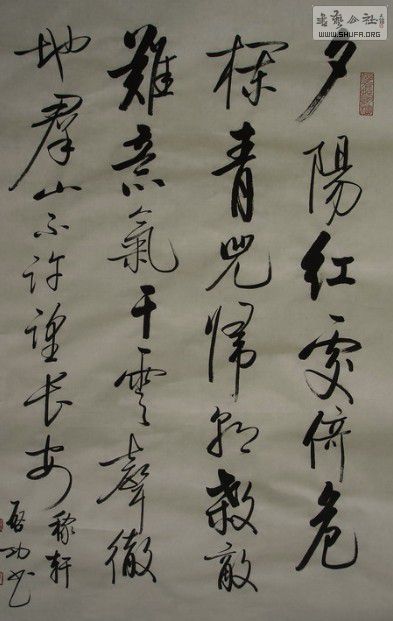 書藝公社
WWW.SHUFA.ORG
夕陽紅處倚危
欄青兕歸朝殺敵
難意氣干雲聲徹
地羣山不許望長安
稼軒
啓功书